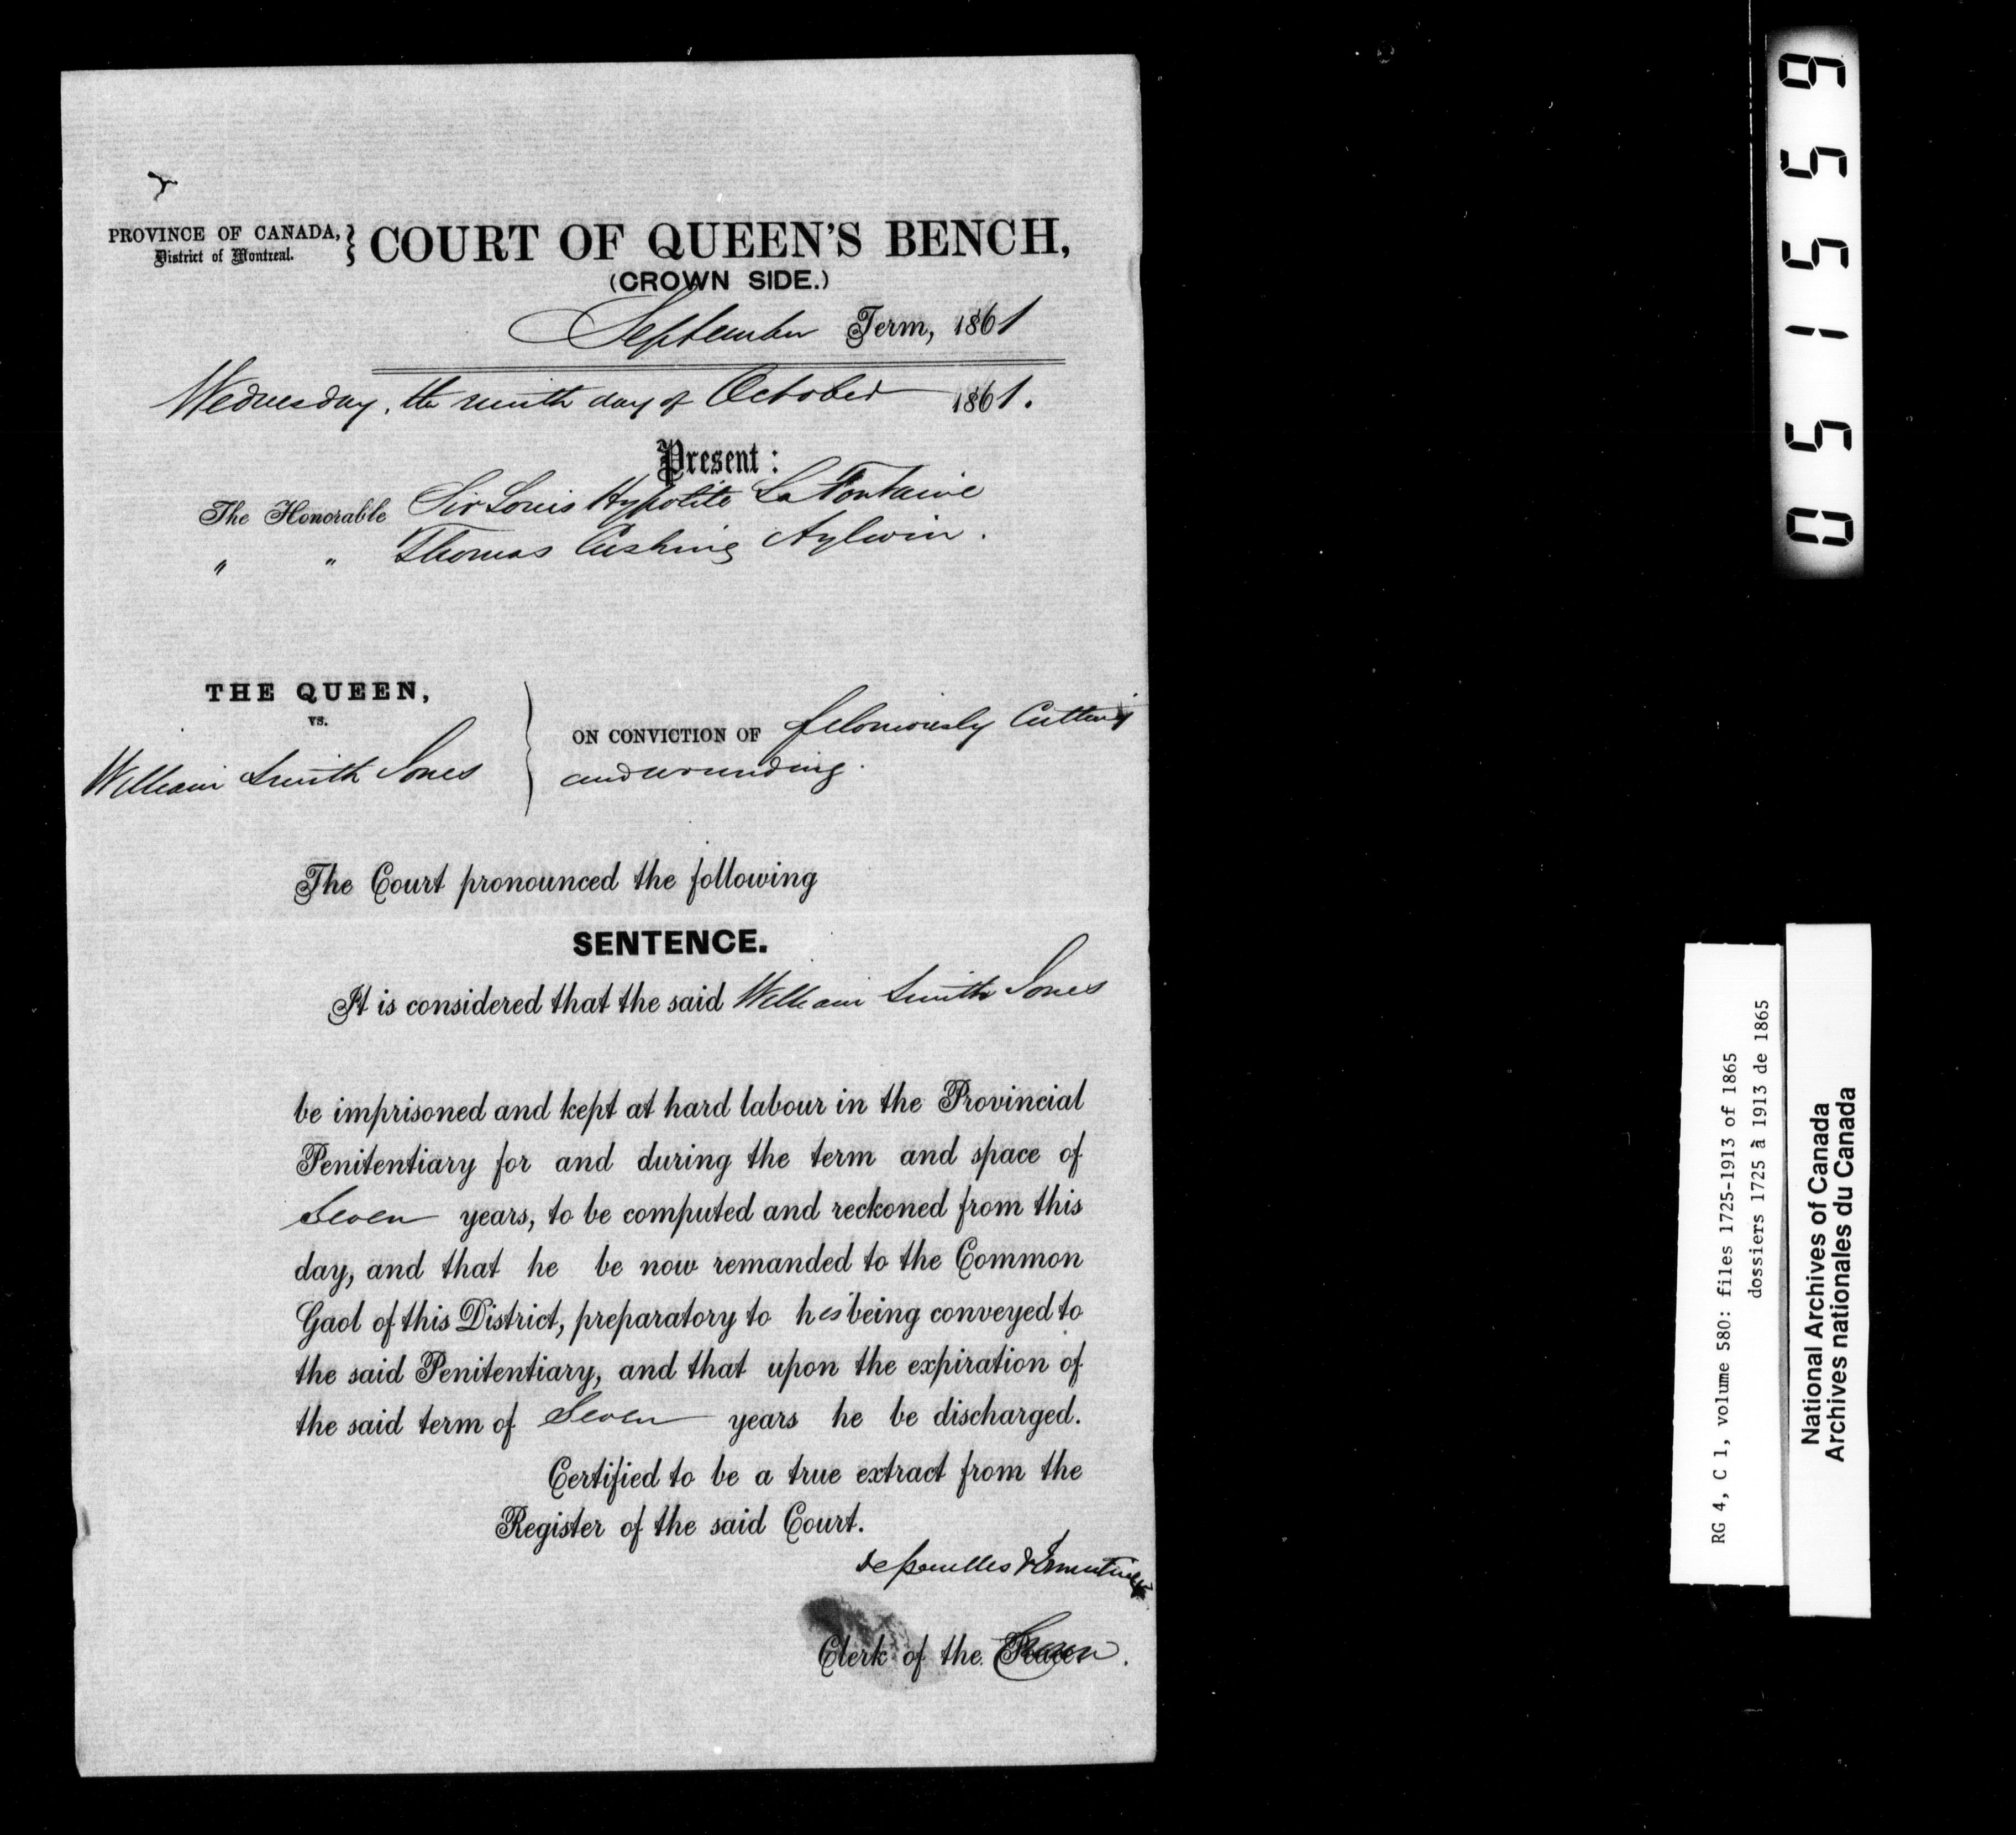 PROVINCE OF CANADA,
District of Montreal.
COURT OF QUEEN'S BENCH,
(CROWN SIDE.)
September Term, 1861
Wednesday, the ninth day of October 1861.
Present :
The Honorable Sir Louis Hypolite La Fontaine
" " Thomas Cushing Aylwin.
THE QUEEN,
vs.
William Smith Jones
ON CONVICTION OF feloniously Cutting
and wounding.
The Court pronounced the following
SENTENCE.
It is considered that the said William Smith Jones
be imprisoned and kept at hard labour in the Provincial
Penitentiary for and during the term and space of
Seven years, to be computed and reckoned from this
day, and that he be now remanded to the Common
Gaol of this District, preparatory to his being conveyed to
the said Penitentiary, and that upon the expiration of
the said term of Seven years he be discharged.
Certified to be a true extract from the
Register of the said Court.
Clerk of the Crown.
051559
RG 4, C 1, volume 580: files 1725-1913 of 1865
dossiers 1725 à 1913 de 1865
National Archives of Canada
Archives nationales du Canada